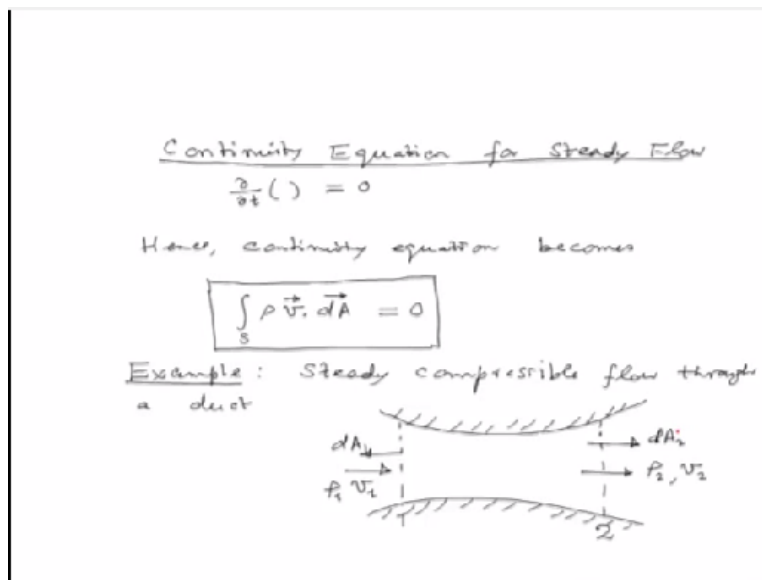 Continuity Equation for Steady Flow
∂/∂t ( ) = 0
Hence, continuity equation becomes
∫_S ρ v⃗ . dA⃗ = 0
Example : Steady compressible flow through
a duct
dA₁
ρ₁ v₁
dA₂
ρ₂, v₂
1
2